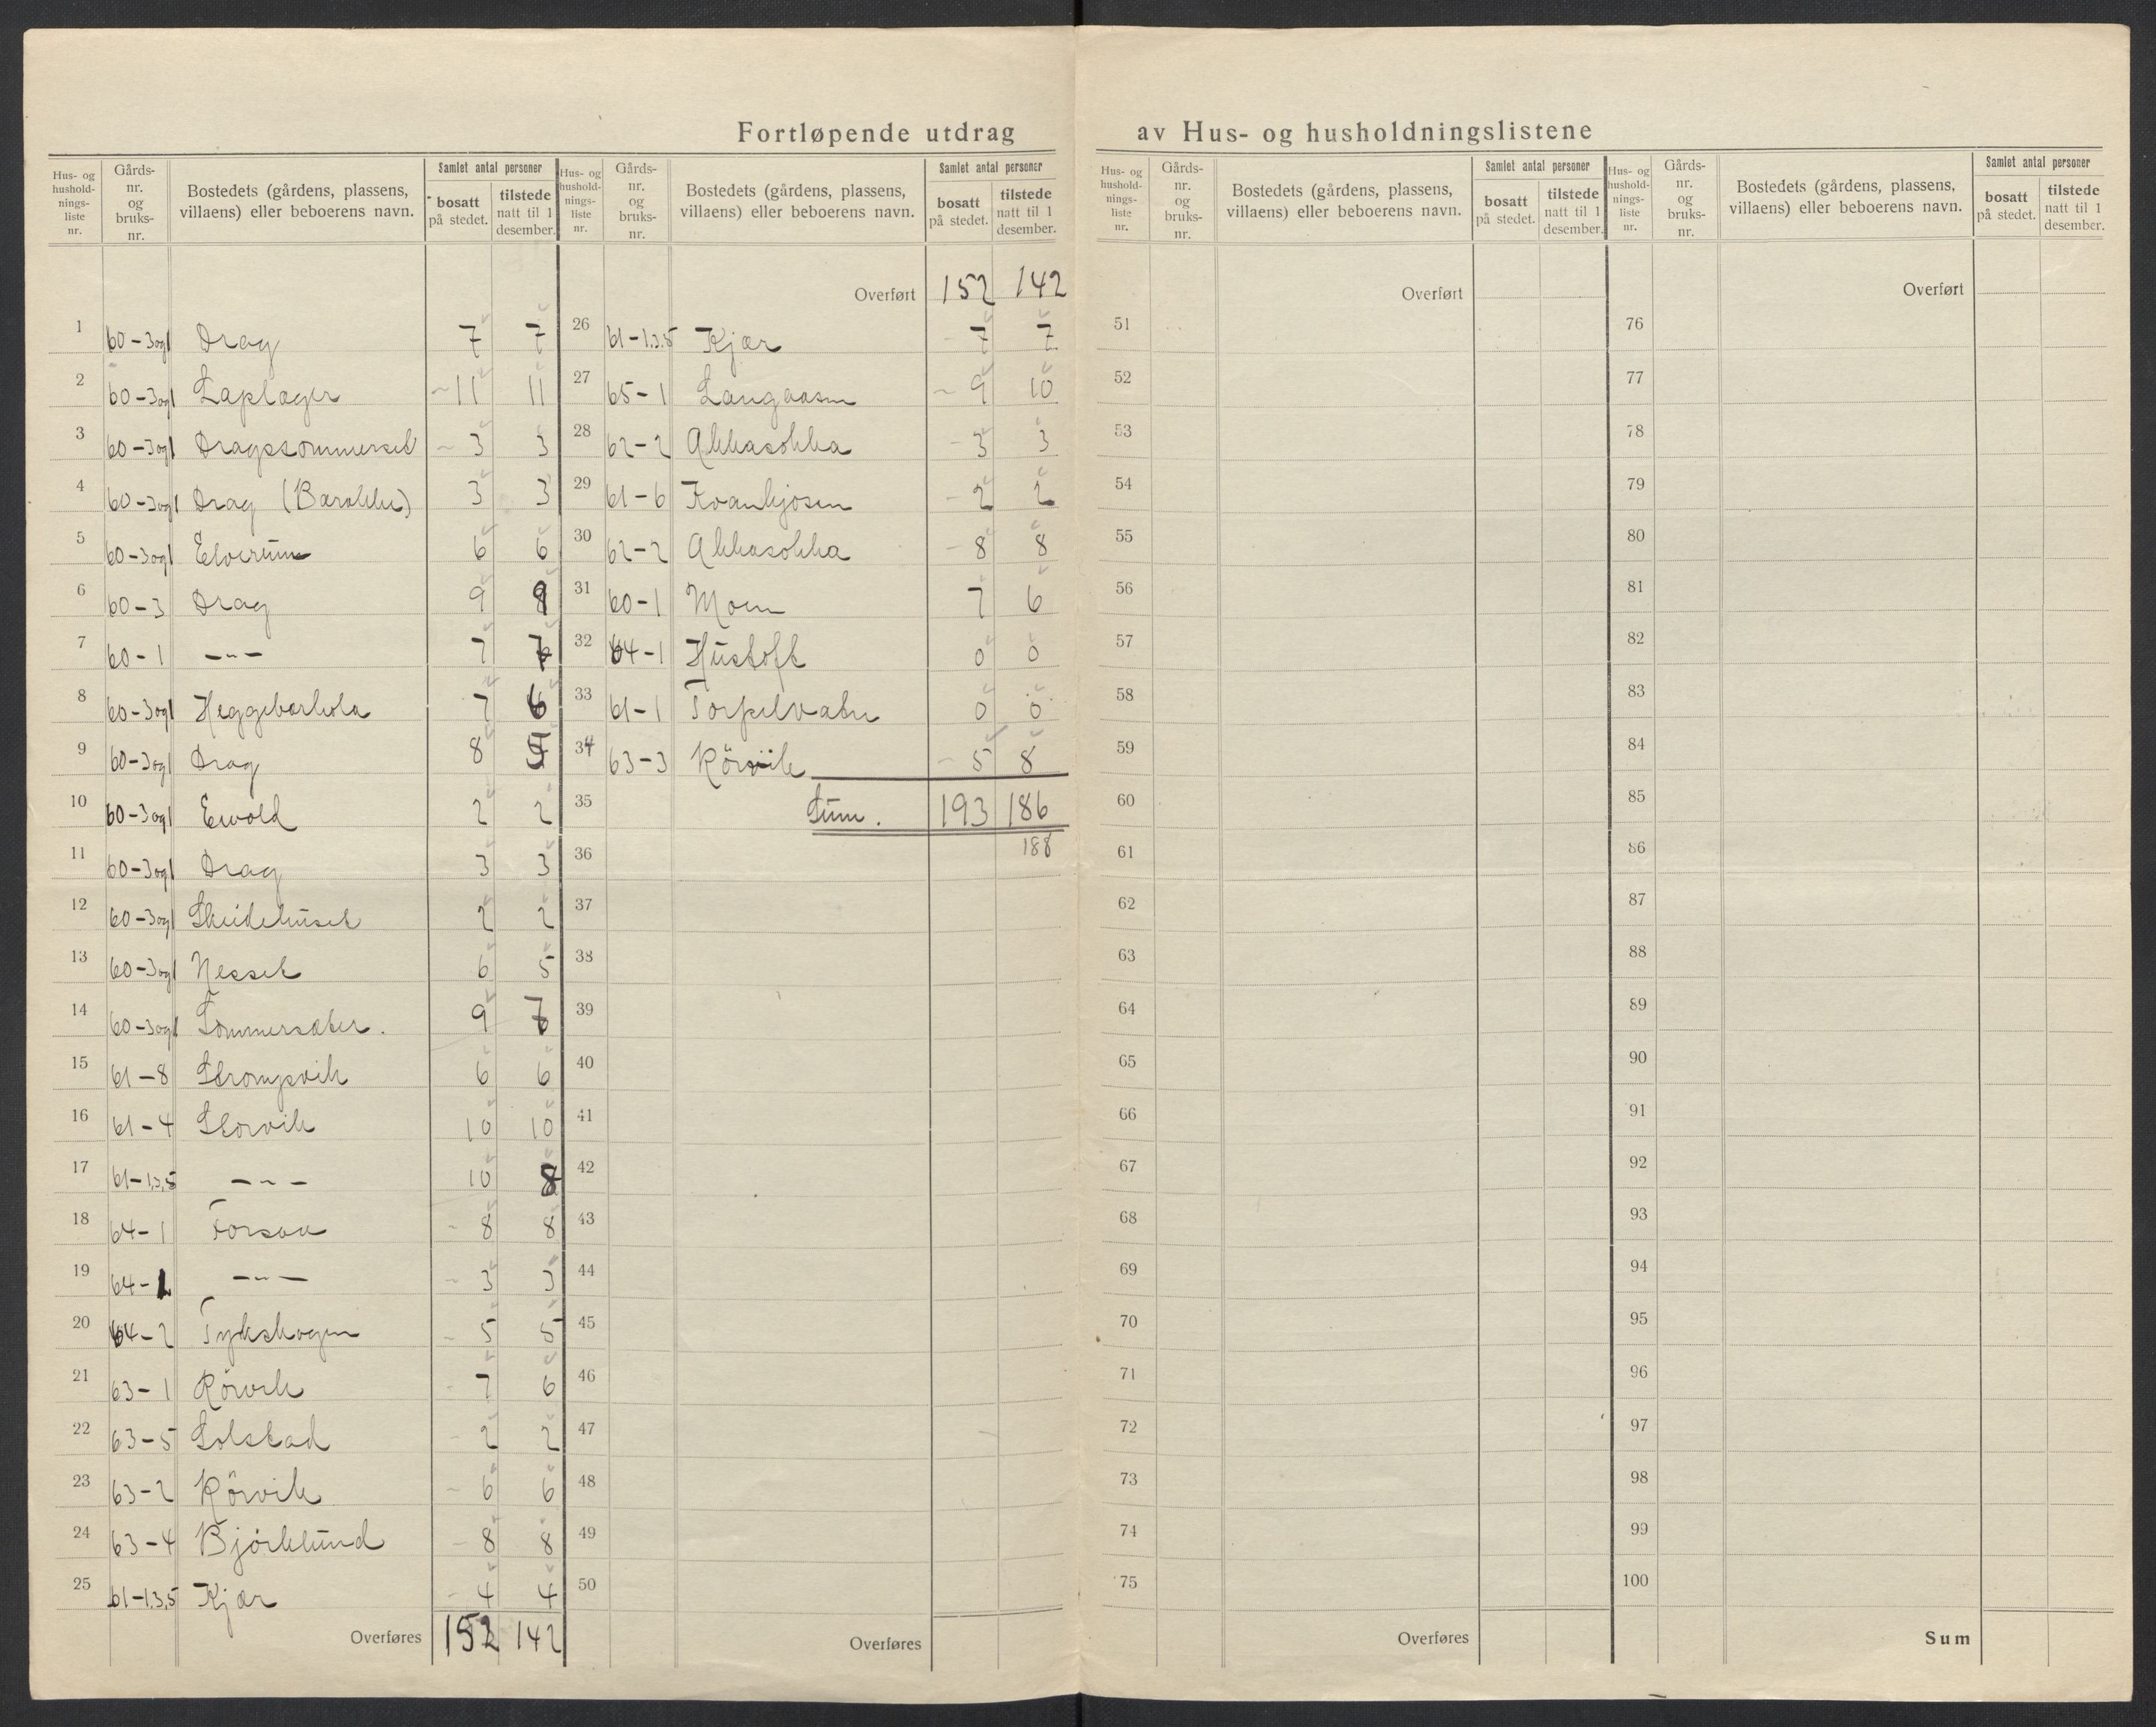 Fortløpende utdrag av Hus- og husholdningslistene
Hus- og hushold-nings-liste nr. Gårds-nr. og bruks-nr. Bostedets (gårdens, plassens, villaens) eller beboerens navn. Samlet antal personer bosatt på stedet. tilstede natt til 1 desember.
1 60-3og1 Drag 7 7
2 60-3og1 Laplager 11 11
3 60-3og1 Dragssommerset 3 3
4 60-3og1 Drag (Barakke) 3 3
5 60-3og1 Elverum 6 6
6 60-3 Drag 9 8
7 60-1 -"- 7 7
8 60-3og1 Heggebarkola 7 6
9 60-3og1 Drag 8 5
10 60-3og1 Evold 2 2
11 60-3og1 Drag 3 3
12 60-3og1 Skeidehuset 2 2
13 60-3og1 Nesset 6 5
14 60-3og1 Sommersæter. 9 7
15 61-8 Strompvik 6 6
16 61-4 Storvik 10 10
17 61-1,3,5 -"- 10 8
18 64-1 Forsaa 8 8
19 64-1 -"- 3 3
20 64-2 Tykskogen 5 5
21 63-1 Rörvik 7 6
22 63-5 Solstad 2 2
23 63-2 Rörvik 6 6
24 63-4 Björklund 8 8
25 61-1,3,5 Kjær 4 4
Overføres 152 142
Hus- og hushold-nings-liste nr. Gårds-nr. og bruks-nr. Bostedets (gårdens, plassens, villaens) eller beboerens navn. Samlet antal personer bosatt på stedet. tilstede natt til 1 desember.
Overført 152 142
26 61-1,3,5 Kjær 7 7
27 65-1 Langaasen 9 10
28 62-2 Akkasokka 3 3
29 61-6 Kvankjosen 2 2
30 62-2 Akkasokka 8 8
31 60-1 Moen 7 6
32 64-1 Hustoft 0 0
33 61-1 Torpelvatn 0 0
34 63-3 Rörvik 5 8
35 Sum. 193 186
36 188
37
38
39
40
41
42
43
44
45
46
47
48
49
50
Overføres
Hus- og hushold-nings-liste nr. Gårds-nr. og bruks-nr. Bostedets (gårdens, plassens, villaens) eller beboerens navn. Samlet antal personer bosatt på stedet. tilstede natt til 1 desember.
Overført
51
52
53
54
55
56
57
58
59
60
61
62
63
64
65
66
67
68
69
70
71
72
73
74
75
Overføres
Hus- og hushold-nings-liste nr. Gårds-nr. og bruks-nr. Bostedets (gårdens, plassens, villaens) eller beboerens navn. Samlet antal personer bosatt på stedet. tilstede natt til 1 desember.
Overført
76
77
78
79
80
81
82
83
84
85
86
87
88
89
90
91
92
93
94
95
96
97
98
99
100
Sum